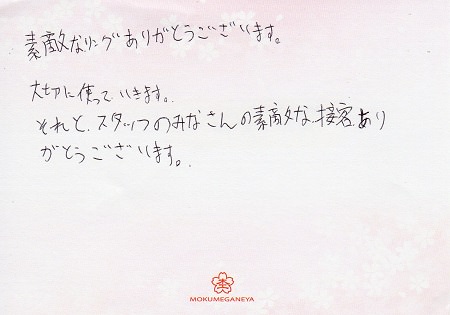 素敵なリングありがとうございます。
大切に使っていきます。
それと、スタッフのみなさんの素敵な接客あり
がとうございます。
MOKUMEGANEYA